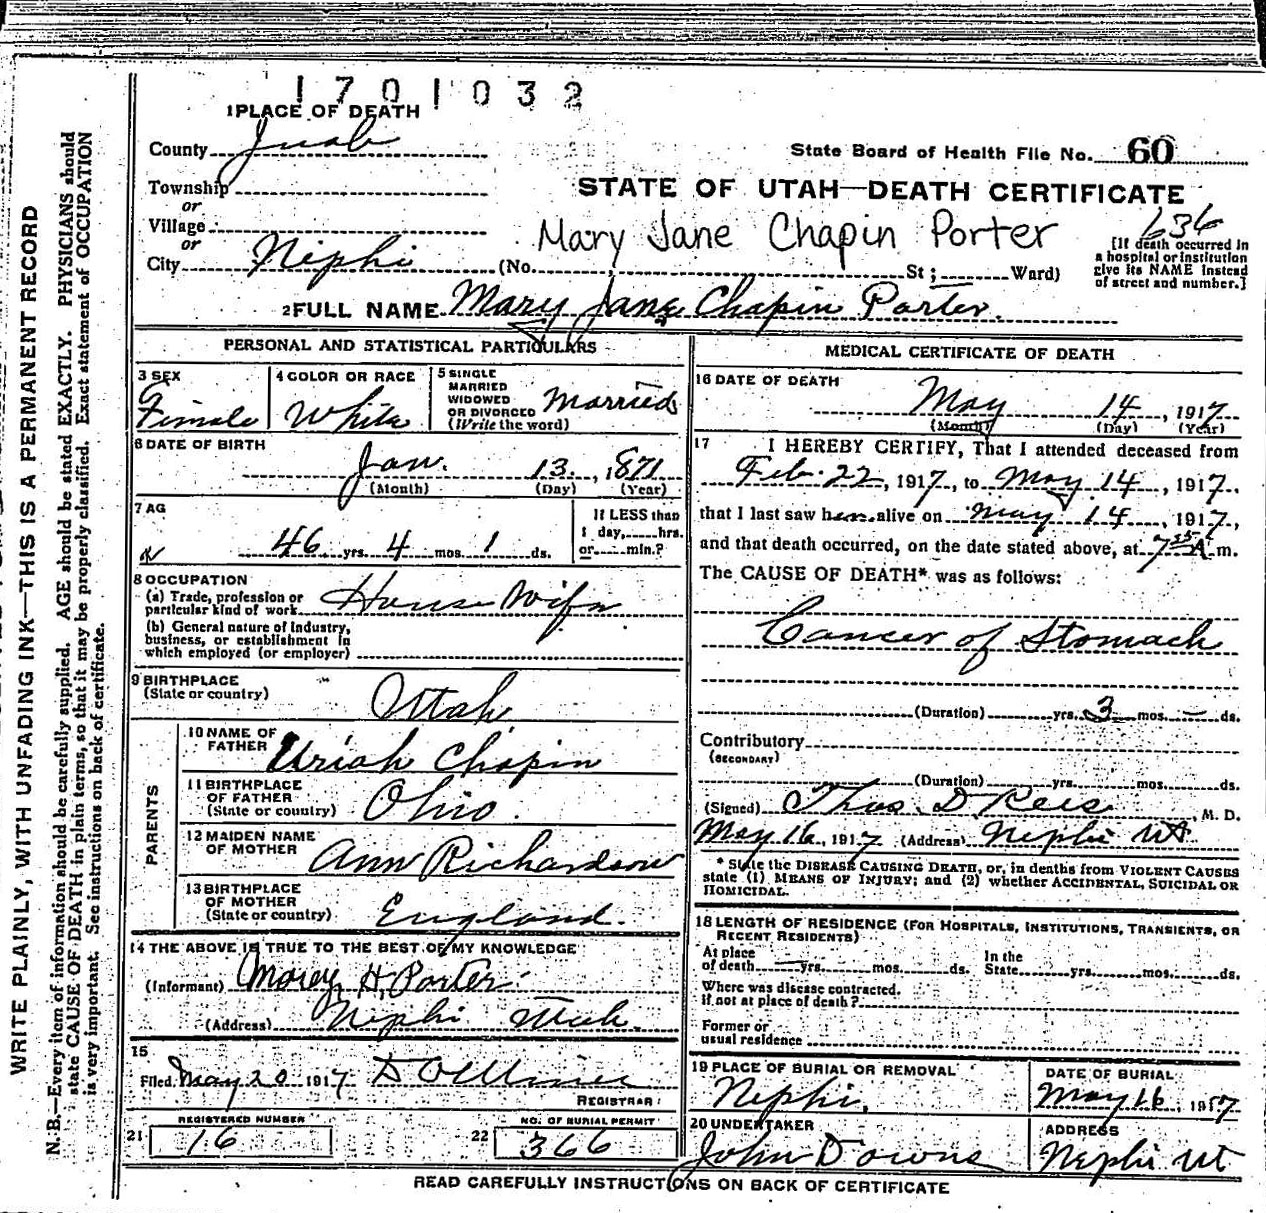 1701032
1 PLACE OF DEATH
County Juab
State Board of Health File No. 60
Township
or
STATE OF UTAH—DEATH CERTIFICATE
Village
or
Mary Jane Chapin Porter 636
City Nephi (No. St; Ward)
[If death occurred in
a hospital or institution
give its NAME instead
of street and number.]
2 FULL NAME Mary Jane Chapin Porter.
PERSONAL AND STATISTICAL PARTICULARS
3 SEX
Female
4 COLOR OR RACE
White
5 SINGLE
MARRIED
WIDOWED
OR DIVORCED
(Write the word)
Married
6 DATE OF BIRTH
Jan. 13, 1871
(Month) (Day) (Year)
7 AG
46 yrs. 4 mos. 1 ds.
If LESS than
1 day, hrs.
or min.?
8 OCCUPATION
(a) Trade, profession or
particular kind of work House Wife
(b) General nature of Industry,
business, or establishment in
which employed (or employer)
9 BIRTHPLACE
(State or country)
Utah
PARENTS
10 NAME OF
FATHER
Uriah Chapin
11 BIRTHPLACE
OF FATHER
(State or country)
Ohio.
12 MAIDEN NAME
OF MOTHER
Ann Richardson
13 BIRTHPLACE
OF MOTHER
(State or country)
England.
14 THE ABOVE IS TRUE TO THE BEST OF MY KNOWLEDGE
(Informant) H. Porter
(Address) Nephi Utah.
15
Filed May 20 1917
REGISTRAR
REGISTERED NUMBER
21 16
NO. OF BURIAL PERMIT
22 366
MEDICAL CERTIFICATE OF DEATH
16 DATE OF DEATH
May 14, 1917
(Month) (Day) (Year)
17 I HEREBY CERTIFY, That I attended deceased from
Feb. 22, 1917, to May 14, 1917,
that I last saw her alive on May 14, 1917,
and that death occurred, on the date stated above, at 7 A. m.
The CAUSE OF DEATH* was as follows:
Cancer of Stomach
(Duration) yrs. 3 mos. – ds.
Contributory
(SECONDARY)
(Duration) yrs. mos. ds.
(Signed) Thos. D Rees, M. D.
May 16, 1917 (Address) Nephi Ut
* State the DISEASE CAUSING DEATH, or, in deaths from VIOLENT CAUSES
state (1) MEANS OF INJURY; and (2) whether ACCIDENTAL, SUICIDAL OR
HOMICIDAL.
18 LENGTH OF RESIDENCE (FOR HOSPITALS, INSTITUTIONS, TRANSIENTS, OR
RECENT RESIDENTS)
At place
of death yrs. mos. ds.
In the
State yrs. mos. ds.
Where was disease contracted,
if not at place of death?
Former or
usual residence
19 PLACE OF BURIAL OR REMOVAL
Nephi.
DATE OF BURIAL
May 16, 1917
20 UNDERTAKER
John Downs
ADDRESS
Nephi Ut
READ CAREFULLY INSTRUCTIONS ON BACK OF CERTIFICATE
WRITE PLAINLY, WITH UNFADING INK—THIS IS A PERMANENT RECORD
N. B.—Every item of information should be carefully supplied. AGE should be stated EXACTLY. PHYSICIANS should
state CAUSE OF DEATH in plain terms, so that it may be properly classified. Exact statement of OCCUPATION
is very important. See instructions on back of certificate.